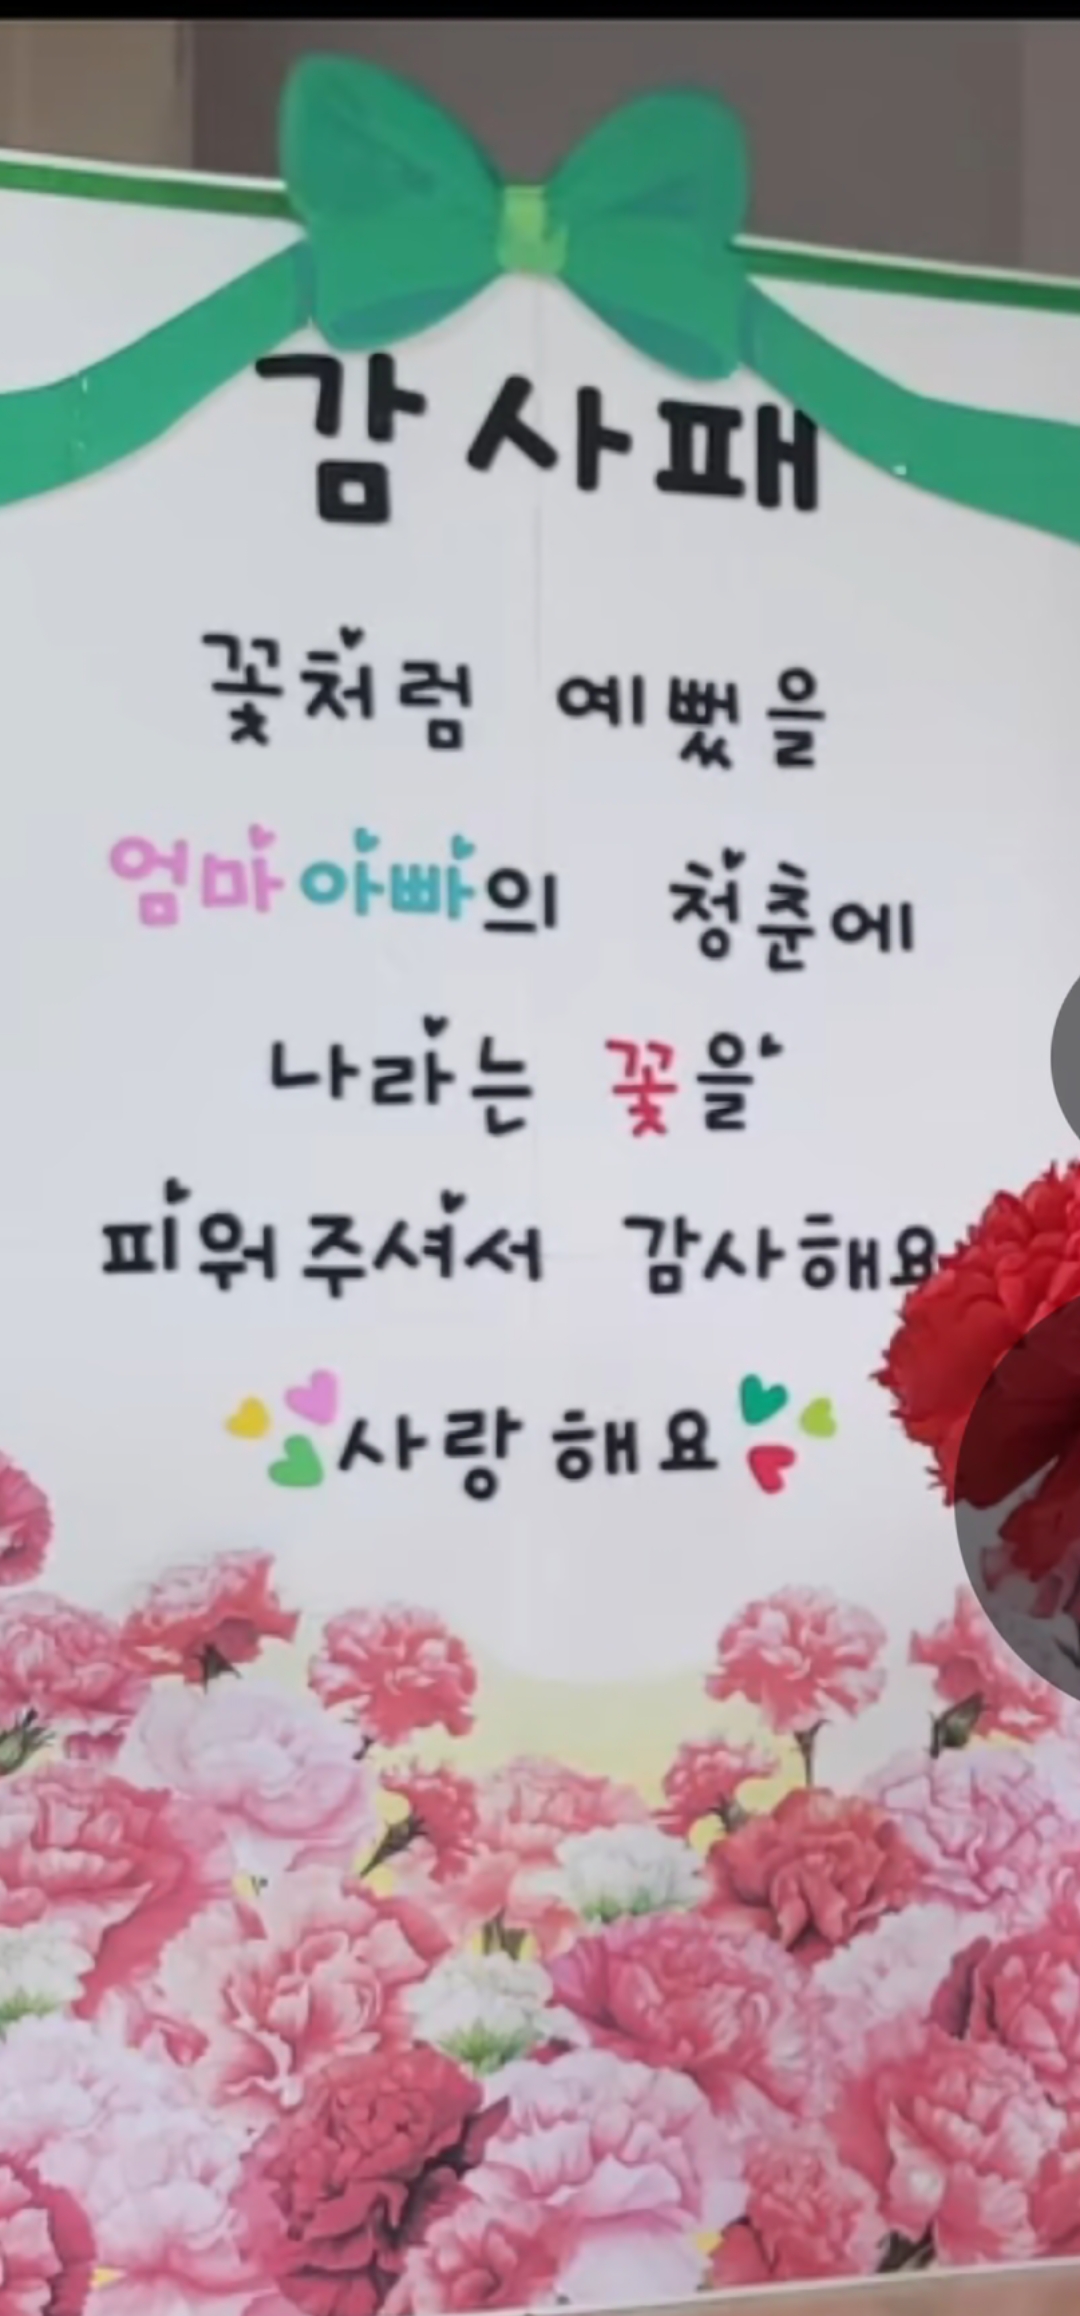 감사패
꽃처럼 예뻤을
엄마아빠의 청춘에
나라는 꽃을
피워주셔서 감사해요
사랑해요